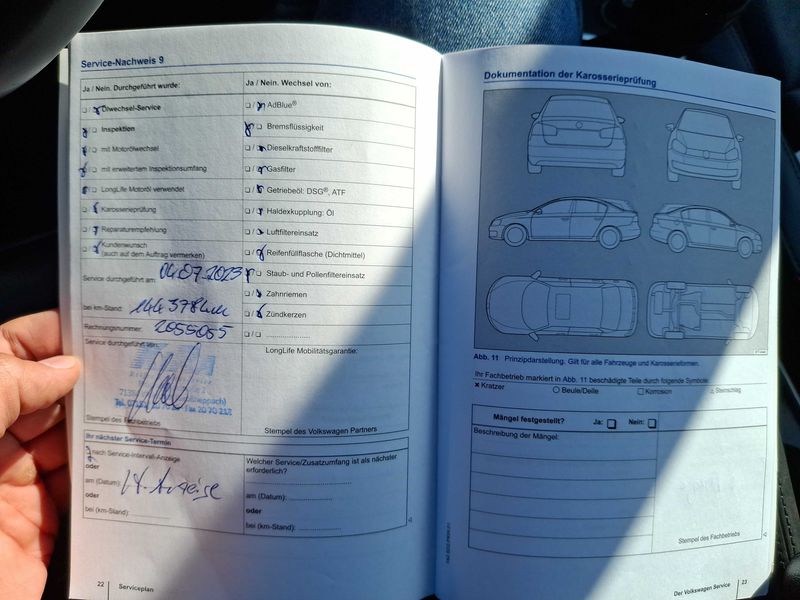 Service-Nachweis 9
Ja / Nein. Durchgeführt wurde:
❏ / ❏ Ölwechsel-Service
❏ / ❏ Inspektion
❏ / ❏ mit Motorölwechsel
❏ / ❏ mit erweitertem Inspektionsumfang
❏ / ❏ LongLife Motoröl verwendet
❏ / ❏ Karosserieprüfung
❏ / ❏ Reparaturempfehlung
❏ / ❏ Kundenwunsch
(auch auf dem Auftrag vermerken)
Service durchgeführt am: 04.07.2023
bei km-Stand: 144378km
Rechnungsnummer: 2055065
Service durchgeführt von:
Stempel des Fachbetriebs
Ihr nächster Service-Termin
nach Service-Intervall-Anzeige
oder
am (Datum):
oder
bei (km-Stand):
Ja / Nein. Wechsel von:
❏ / ❏ AdBlue®
❏ / ❏ Bremsflüssigkeit
❏ / ❏ Dieselkraftstofffilter
❏ / ❏ Gasfilter
❏ / ❏ Getriebeöl: DSG®, ATF
❏ / ❏ Haldexkupplung: Öl
❏ / ❏ Luftfiltereinsatz
❏ / ❏ Reifenfüllflasche (Dichtmittel)
❏ / ❏ Staub- und Pollenfiltereinsatz
❏ / ❏ Zahnriemen
❏ / ❏ Zündkerzen
❏ / ❏ ....................
LongLife Mobilitätsgarantie:
Stempel des Volkswagen Partners
Welcher Service/Zusatzumfang ist als nächster
erforderlich?
am (Datum): ....................
oder
bei (km-Stand): ....................
22 Serviceplan
Dokumentation der Karosserieprüfung
Abb. 11 Prinzipdarstellung. Gilt für alle Fahrzeuge und Karosserieformen.
Ihr Fachbetrieb markiert in Abb. 11 beschädigte Teile durch folgende Symbole:
× Kratzer ○ Beule/Delle □ Korrosion △ Steinschlag
Mängel festgestellt? Ja: ❏ Nein: ❏
Beschreibung der Mängel:
Stempel des Fachbetriebs
Der Volkswagen Service 23